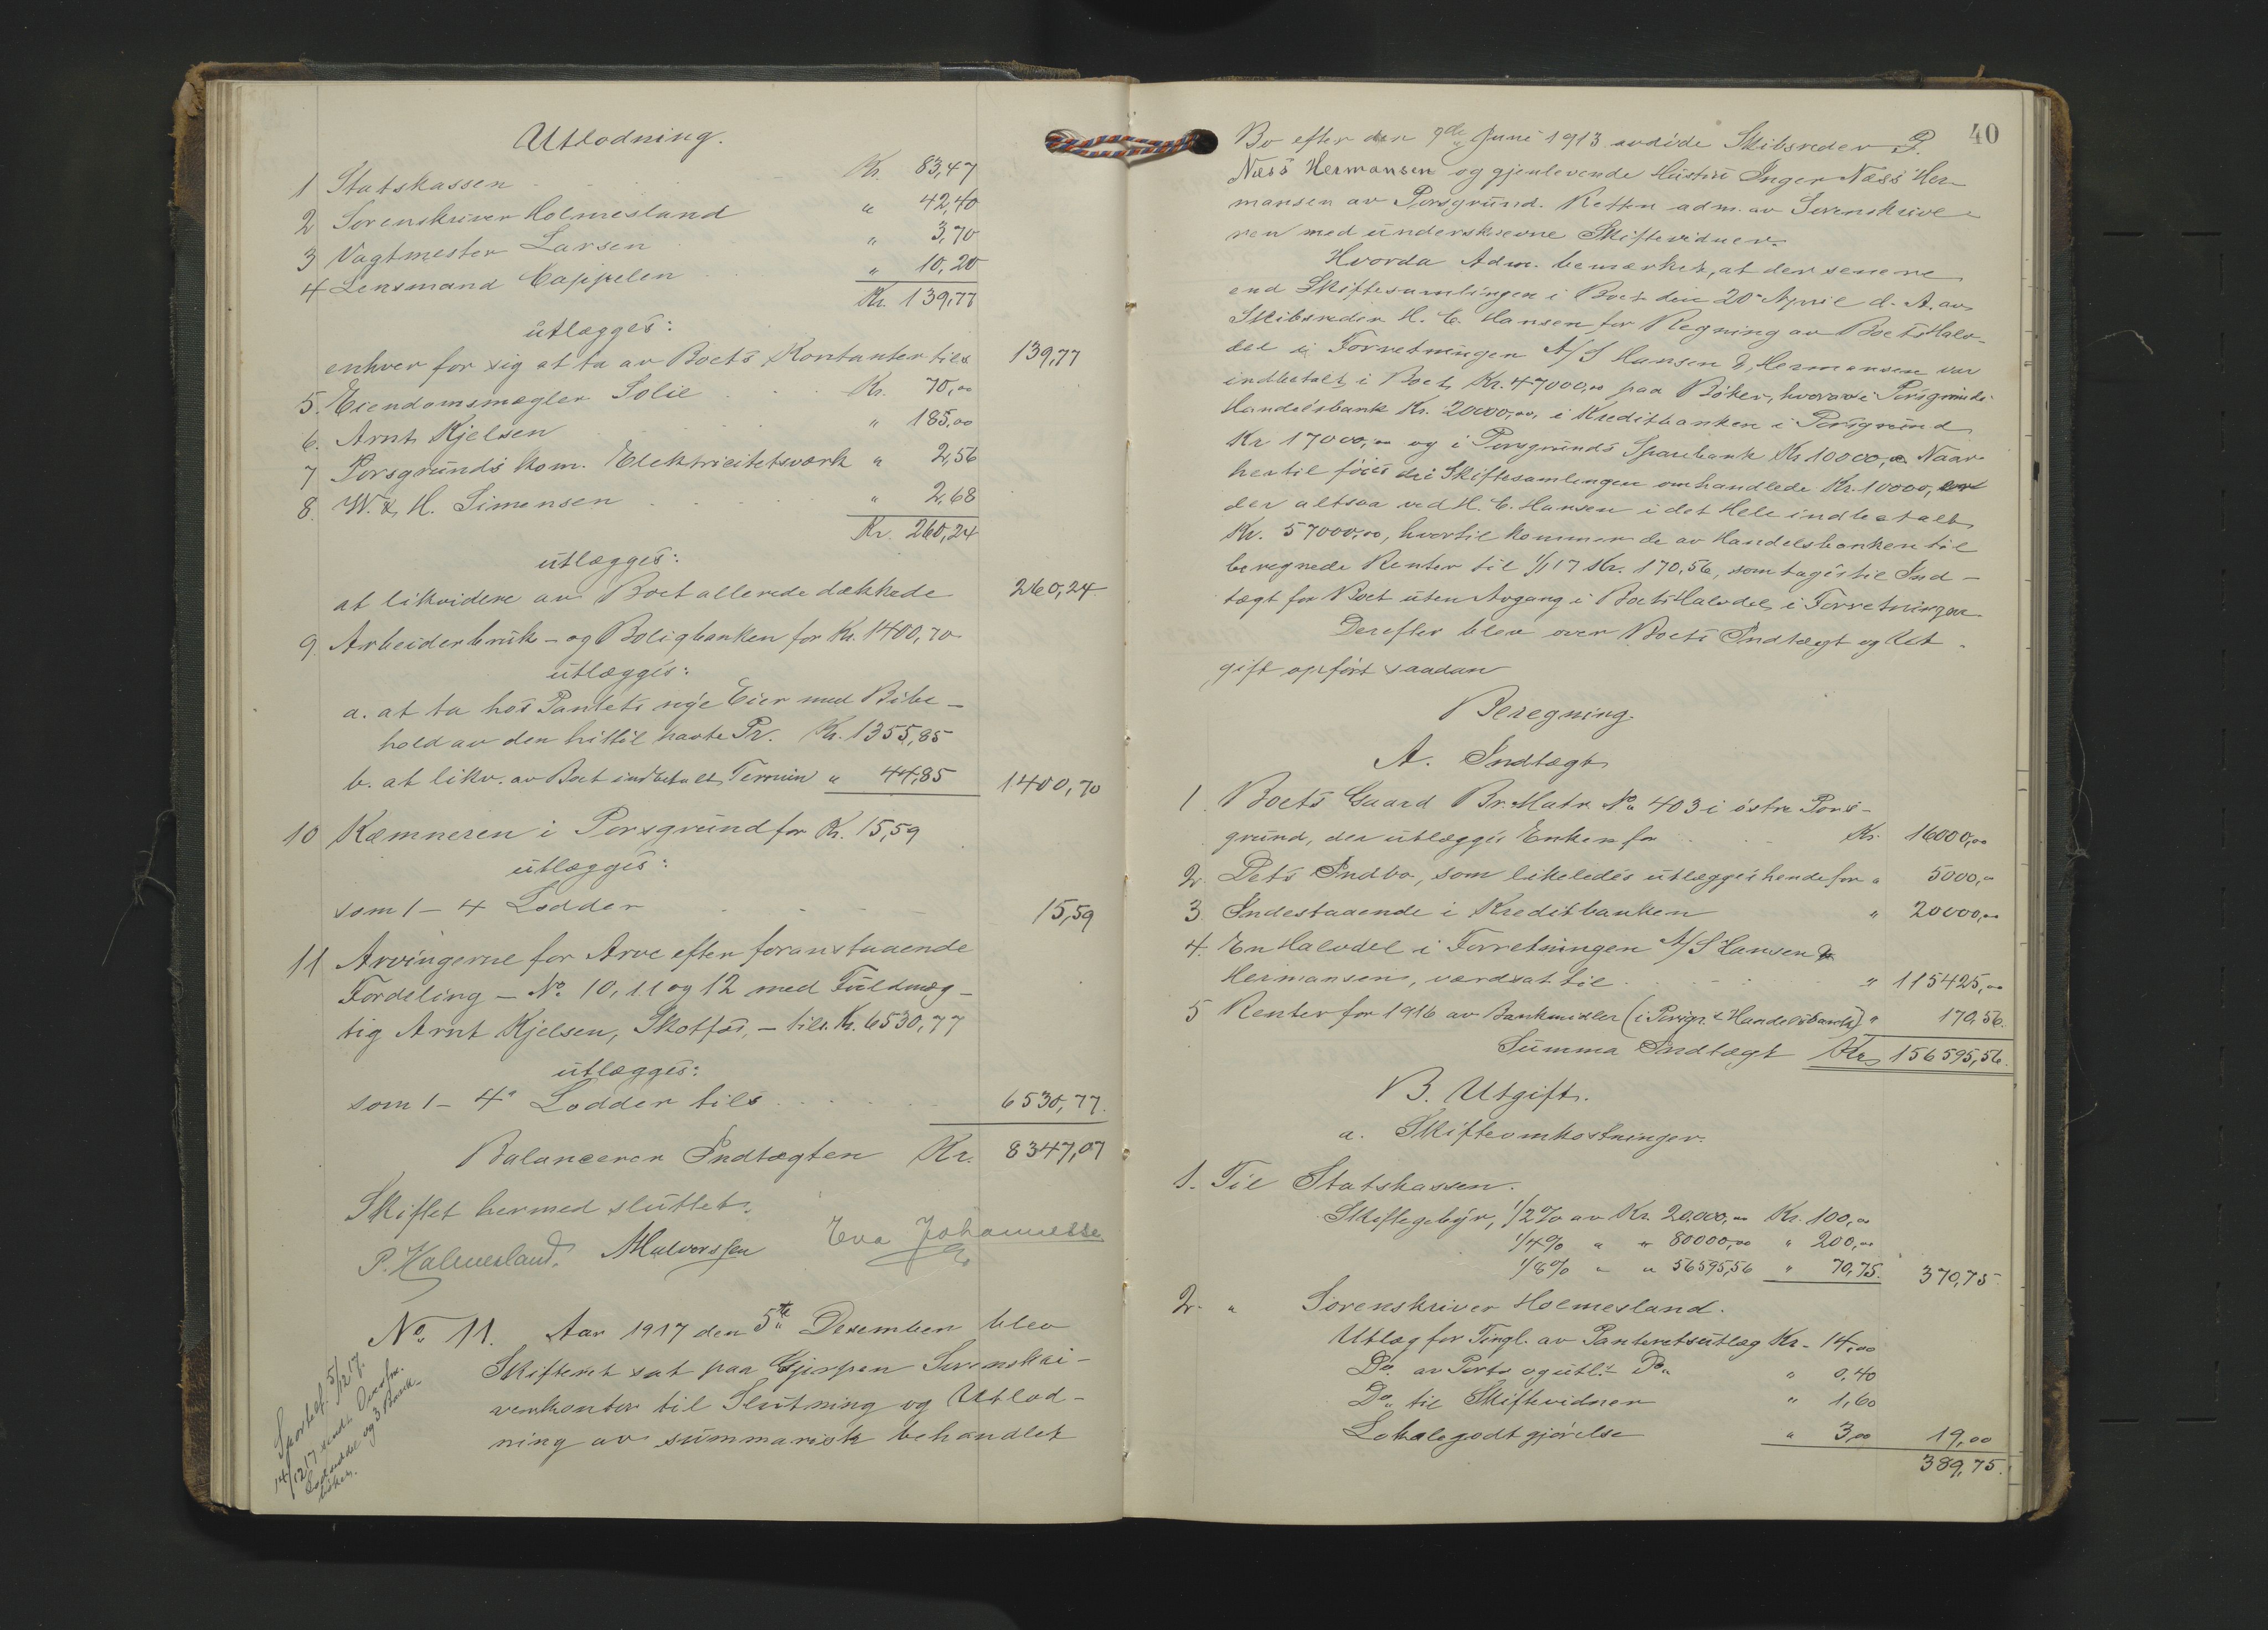 Utlodning.
1 Statskassen Kr. 83,47
2 Sorenskriver Holmesland " 42,40
3 Vagtmester Larsen " 3,70
4 Lensmand Cappelen " 10,20
Kr. 139,77
utlægges:
enhver for sig at ta av Boets Kontanter tils 139,77
5. Eiendomsmægler Solie Kr. 70,00
6. Arnt Kjelsen " 185,00
7 Porsgrunds kom. Elektricitetsværk " 2,56
8. W. & H. Simonsen " 2,68
Kr. 260,24
utlægges:
at likvidere av Boet allerede dækkede 260,24
9. Arbeiderbruk- og Boligbanken for Kr. 1400,70
utlægges:
a. at ta hos Pantets nye Eier med Bibe-
hold av den hittil havte Pr. Kr. 1355,85
b. at likv. av Boet indbetalt Termin " 44,85 1400,70
10 Kæmneren i Porsgrund for Kr. 15,59
utlægges:
som 1 - 4 Lodder 15,59
11 Arvingerne for Arve efter foranstaaende
Fordeling - No. 10, 11 og 12 med Fuldmæg-
tig Arnt Kjelsen, Skotfos, - tils. Kr. 6530,77
utlægges:
som 1 - 4 Lodder tils 6530,77.
Balancerer Indtægten Kr. 8347,07
Skiftet hermed sluttet.
P. Holmesland. Halvorssen Eva Johannesse
No. 11. Aar 1917 den 5te Desember blev
Skifteret sat paa Gjerpen Sorenskri-
verkontor til Slutning og Utlod-
ning av summarisk behandlet
5/12 17.
14/12 17 sendt
og 3 Bank-
bøker.
40
Bo efter den 7de Juni 1913 avdøde Skibsreder P.
Næss Hermansen og gjenlevende Hustru Inger Næss Her-
mansen av Porsgrund. Retten adm. av Sorenskrive-
ren med underskrevne Skiftevidner.
Hvorda Adm. bemærket, at der senere
end Skiftesamlingen i Boet den 20 April d. A. av
Skibsreder H. C. Hansen for Regning av Boets Halv-
del i Forretningen A/S Hansen & Hermansen var
indbetalt i Boet Kr. 47000,00 paa Bøker, hvorav i Porsgrunds
Handelsbank Kr. 20000,00, i Kreditbanken i Porsgrund
Kr 17000,00 og i Porsgrunds Sparebank Kr 10000,00. Naar
hertil føies de i Skiftesamlingen omhandlede Kr. 10000, er
der altsaa ved H. C. Hansen i det Hele indbetalt
Kr. 57000,00, hvortil kommer de av Handelsbanken til
beregnede Renter til 1/1 17 Kr. 170,56, som tages til Ind-
tægt for Boet uten Avgang i Boets Halvdel i Forretningen.
Derefter blev over Boets Indtægt og Ut-
gift opført saadan
Beregning
A. Indtægt
1. Boets Gaard Br. Matr. No. 403 i østre Pors-
grund, der utlægges Enken for Kr. 16000,00
2. Dets Indbo, som likeledes utlægges hende for " 5000,00
3 Indestaaende i Kreditbanken " 20000,00
4. En Halvdel i Forretningen A/S Hansen &
Hermansen, værdsat til " 115425,00
5 Renter for 1916 av Bankmidler (i Porsgr. Handelsbank) " 170,56.
Summa Indtægt Kr. 156595,56.
B. Utgift.
a. Skifteomkostninger.
1. Til Statskassen.
Skiftegebyr, 1/2% av Kr. 20.000,00 Kr. 100,00
1/4% " " 80000,00 " 200,00
1/8% " " 56595,56 " 70,75. 370,75
2. " Sorenskriver Holmesland.
Utlæg for Tingl. av Panteretsutlæg Kr. 14,00
Do. av Porto og utl. Do. " 0,40
Do. til Skiftevidner " 1,60
Lokalegodtgjørelse " 3,00 19,00
389,75.